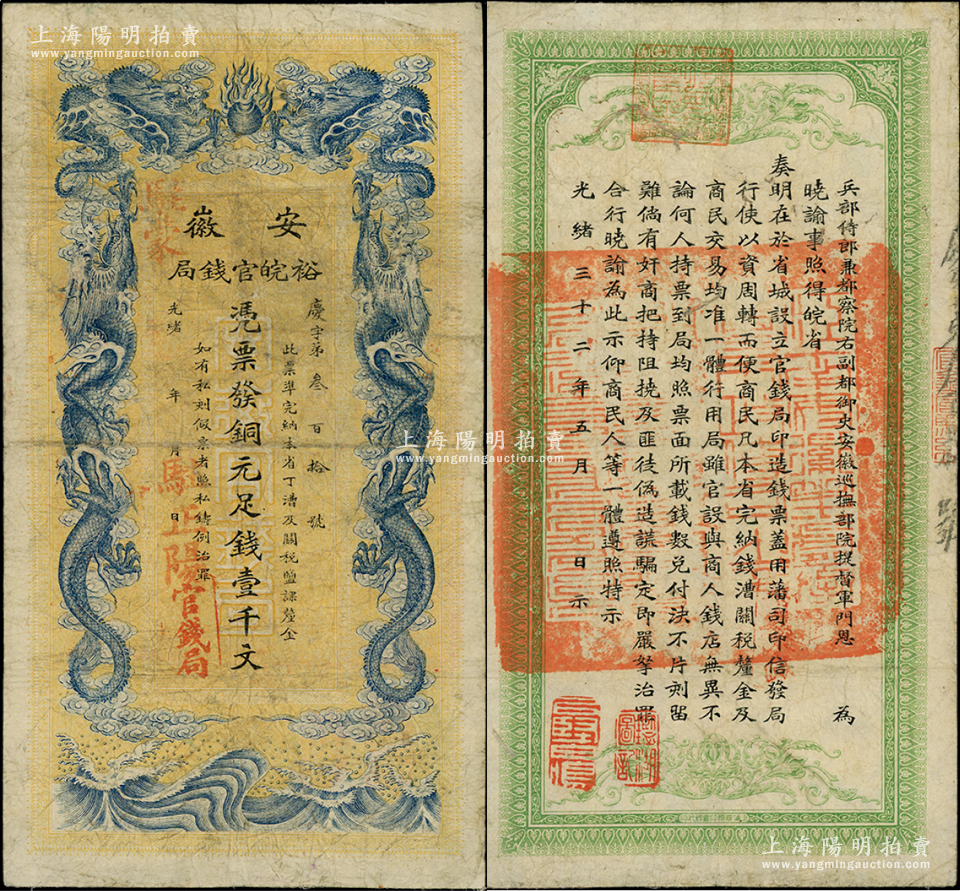 上海陽明拍賣
www.yangmingauction.com
安徽
裕皖官錢局
慶字第叁百拾號
此票準完納本省丁漕及關稅鹽課釐金
憑票發銅元足錢壹千文
如有私刻假票者照私鑄例治罪
光緒 年 月 日
官錢局
兵部侍郎兼都察院右副都御史安徽巡撫部院提督軍門恩 為
曉諭事照得皖省
奏明在於省城設立官錢局印造錢票蓋用藩司印信發局
行使以資周轉而便商民凡本省完納錢漕關稅釐金及
商民交易均准一體行用局雖官設與商人錢店無異不
論何人持票到局均照票面所載錢數兌付決不片刻留
難倘有奸商把持阻撓及匪徒偽造謊騙定即嚴拏治罪
合行曉諭為此示仰商民人等一體遵照特示
光緒三十二年五月 日示
上海陽明拍賣
www.yangmingauction.com
上海陽明拍賣
www.yangmingauction.com